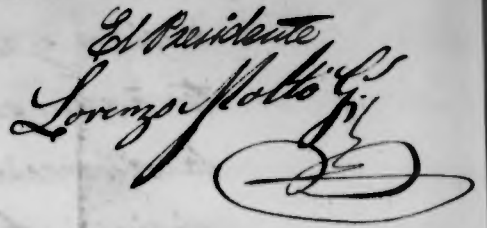 El Presidente
Lorenzo Moltó